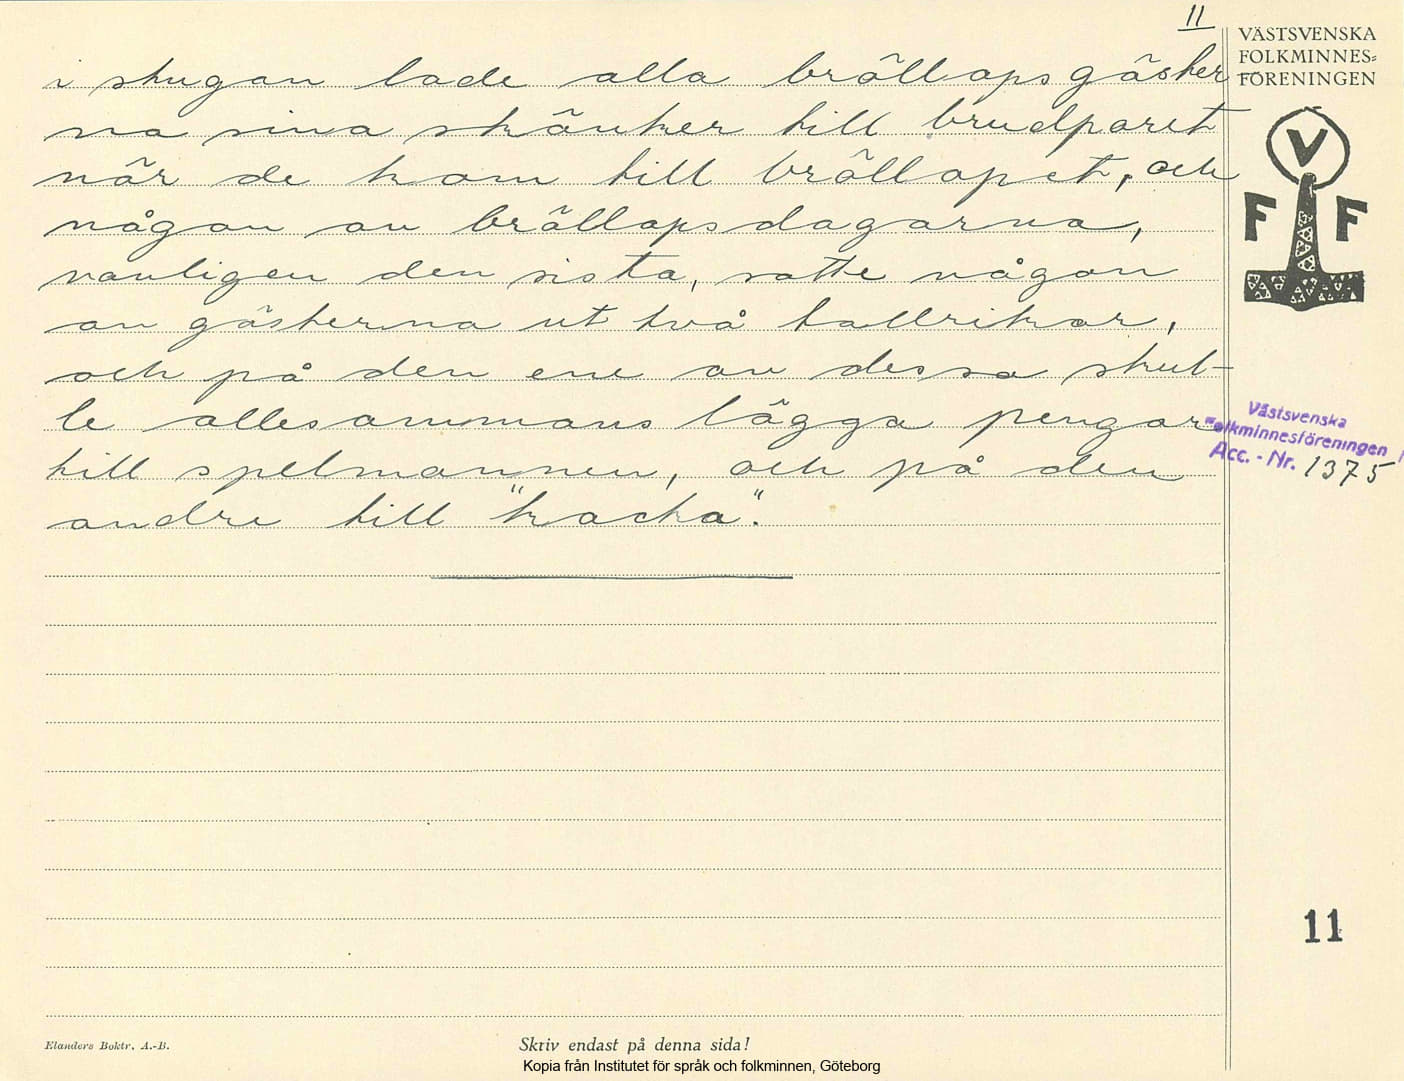 11
VÄSTSVENSKA
FOLKMINNES=
FÖRENINGEN
V
F F
i stugan lade alla bröllopsgäster
na sina skänker till brudparet
när de kom till bröllopet, och
någon av bröllopsdagarna,
vanligen den sista, satte någon
av gästerna ut två tallrikar,
och på den ene av dessa skul-
le allesammans lägga pengar
till spelmannen, och på den
andre till "kocka".
Västsvenska
Folkminnesföreningen
Acc. - Nr. 1375
11
Elanders Boktr. A.-B.
Skriv endast på denna sida!
Kopia från Institutet för språk och folkminnen, Göteborg